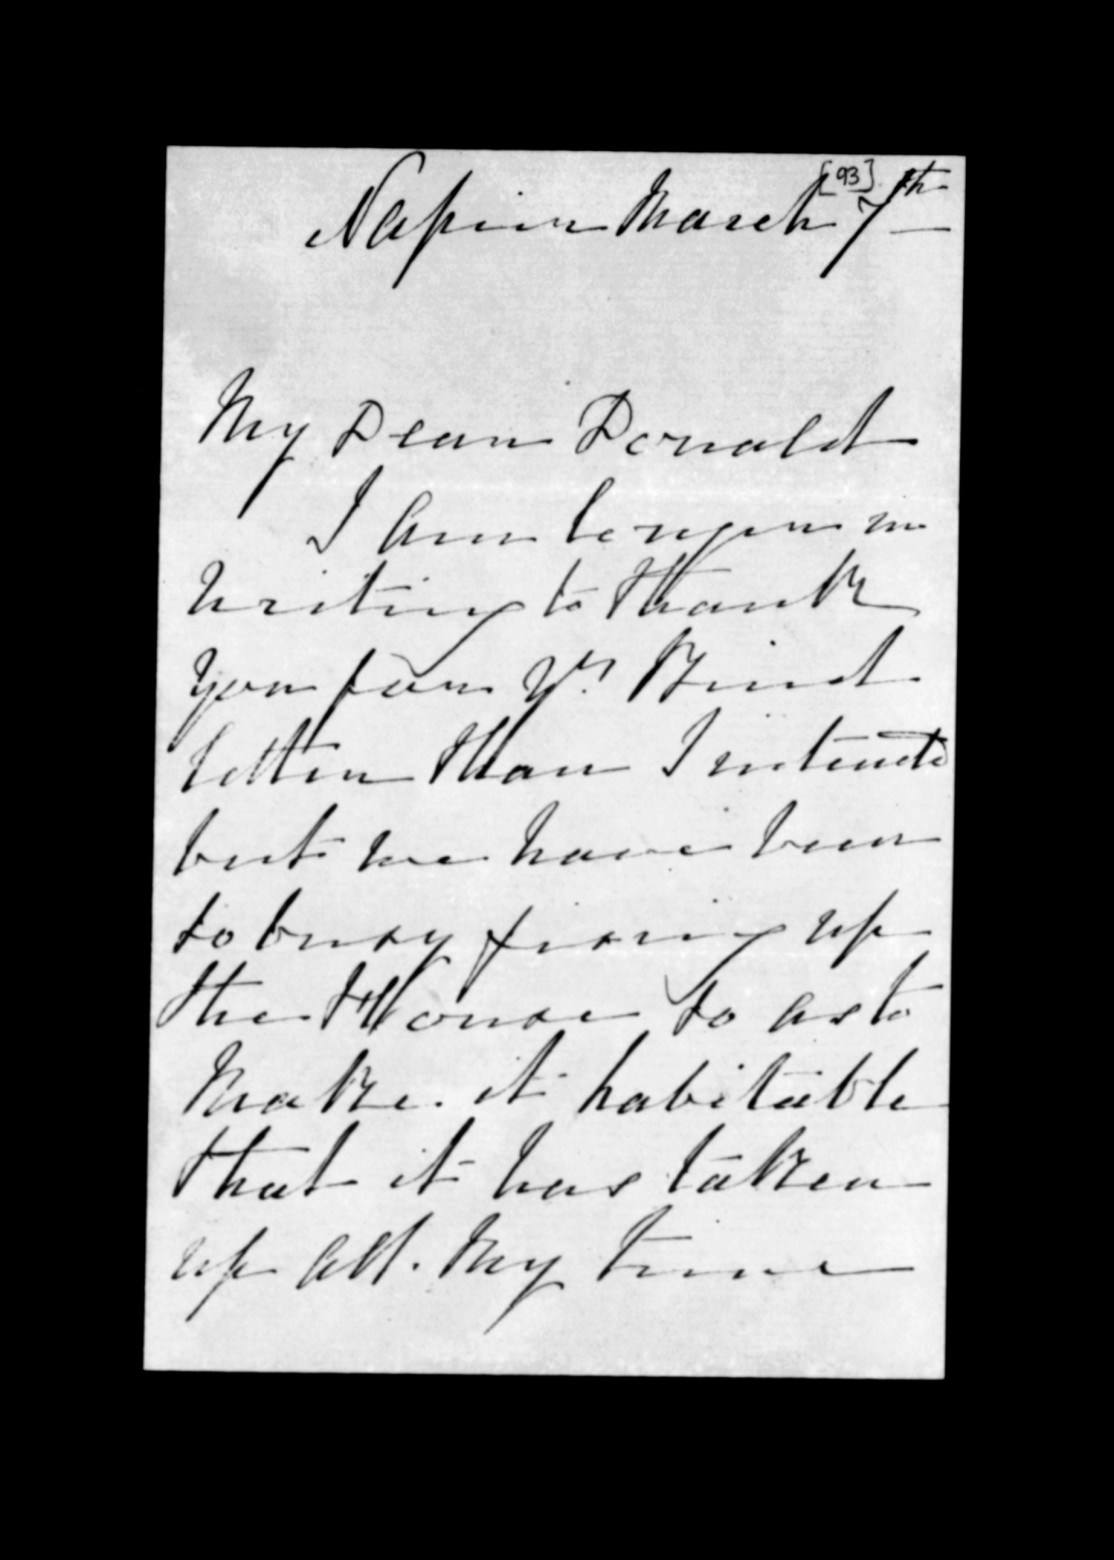 [93]
Napier March 7th
My Dear Donald
I am longer in
writing to thank
you for yr. kind
letter than I intended
but we have been
so busy fixing up
the House so as to
make it habitable
that it has taken
up all my time